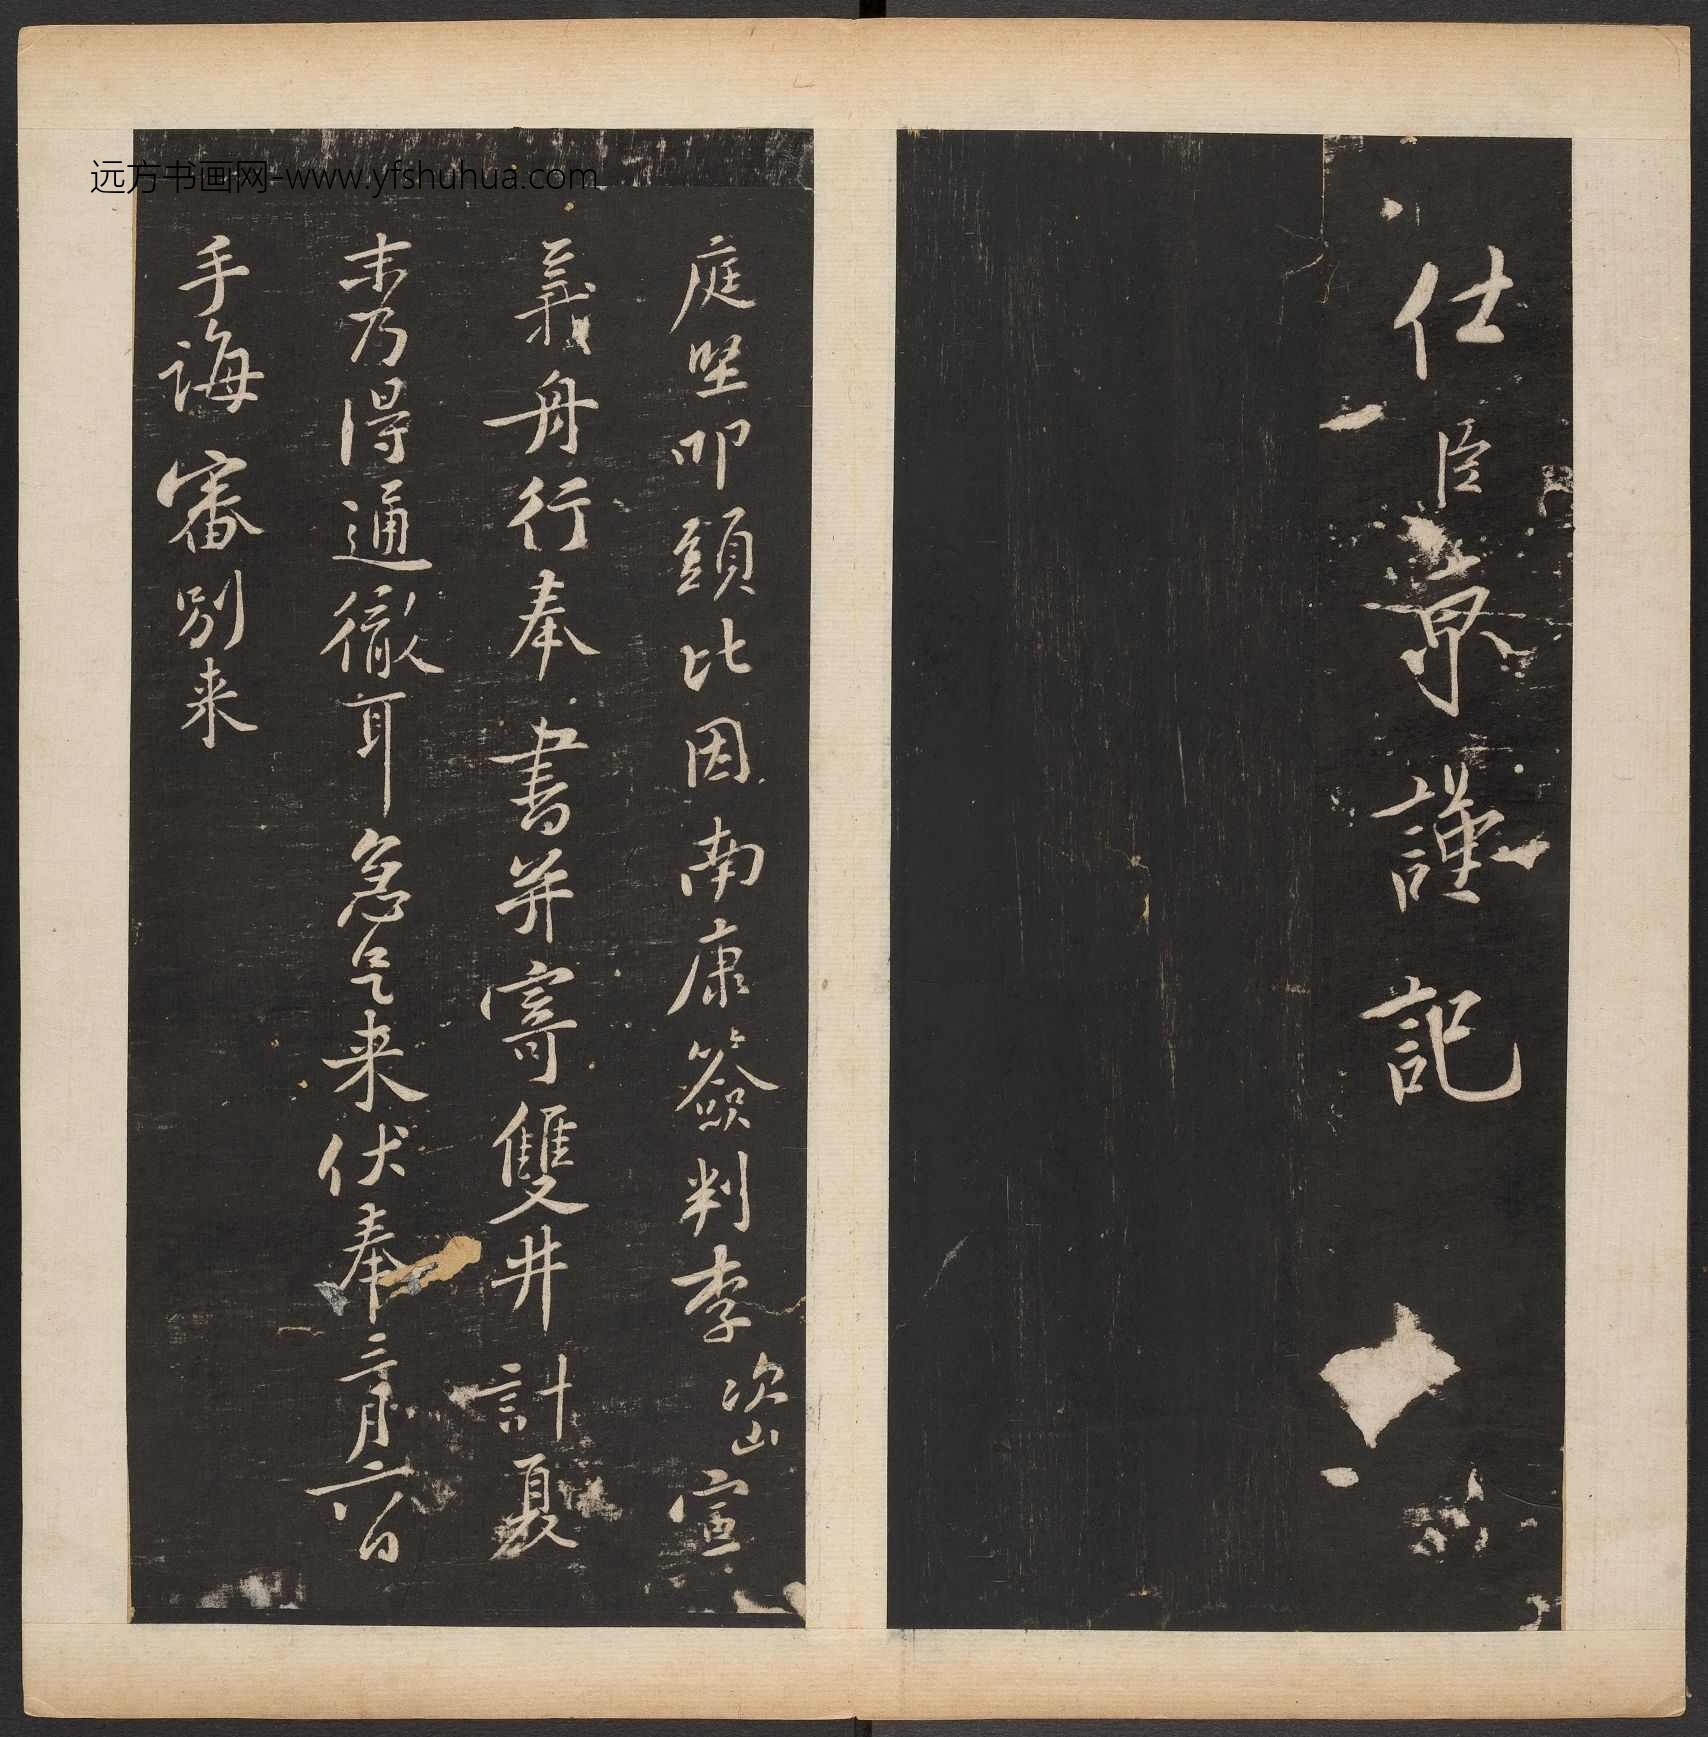 仕臣京謹記
庭堅叩頭比因南康簽判李次山宣
義舟行奉書并寄雙井計夏
末乃得通徹耳急足来伏奉三月六日
手誨審別来
远方书画网-www.yfshuhua.com